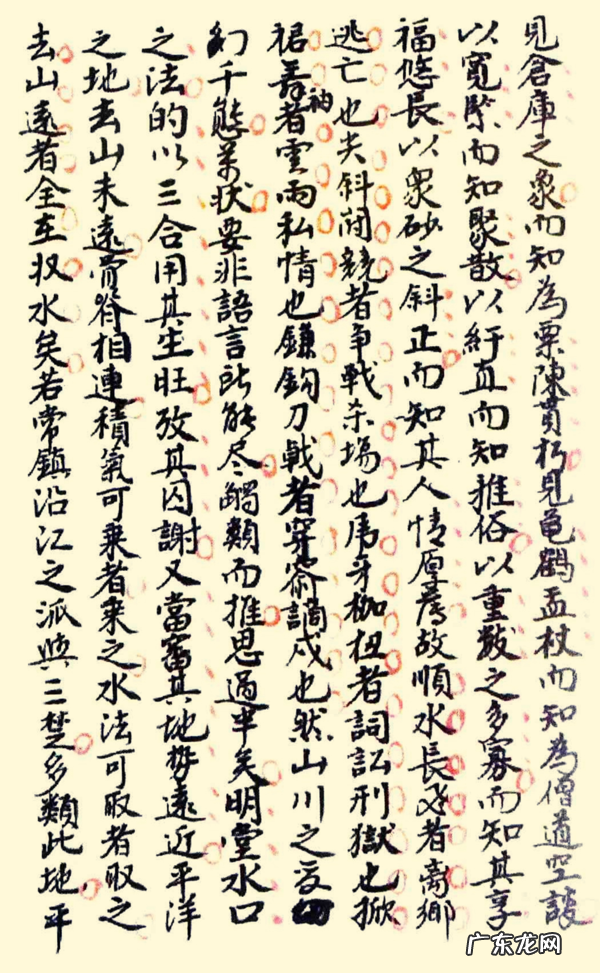 見倉庫之象而知為粟陳貫朽見龜鶴盂杖而知為僧道空談
以寬緊而知聚散以紆直而知雅俗以重數之多寡而知其享
福悠長以衆砂之斜正而知其人情厚薄故順水長者离鄉
逃亡也夫斜闭競者争戰杀塲也虎牙枷杻者詞訟刑獄也掀
裙舞袖者雲雨私情也鐮鈎刀戟者穿窬謫戍也然山川之变
幻千態萬状要非語言所能尽觸類而推思過半矣明堂水口
之法的以三合用其生旺攷其囚謝又當審其地势遠近平洋
之地去山未遠骨脊相連積氣可乗者乗之水法可取者取之
去山遠者全在状水矣若常鎮沿江之派與三楚多類此地平
广东龙网